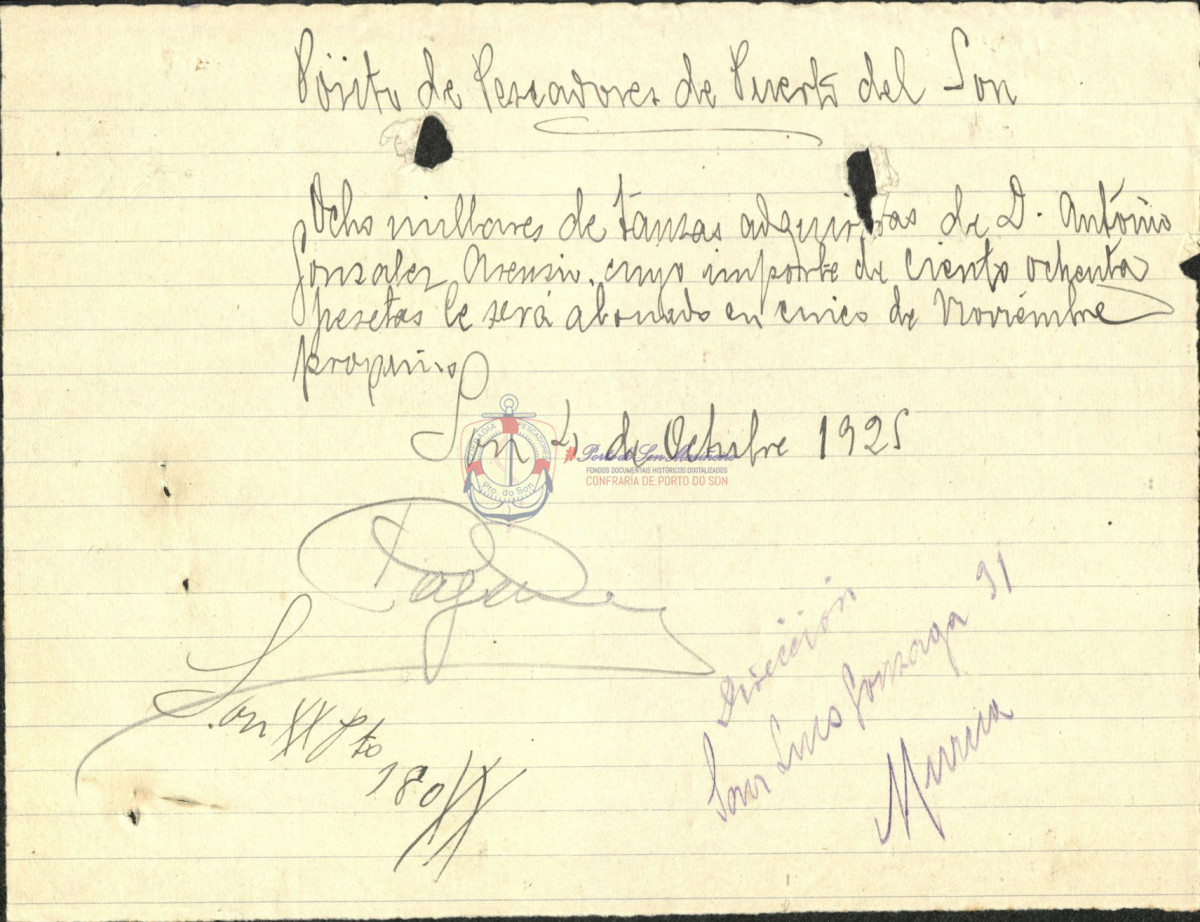 Pósito de Pescadores de Puerto del Son
Ocho millares de tanzas adquiridas de D. António
Gonzalez Asensio, cuyo importe de ciento ochenta
pesetas le será abonado en cinco de Noviembre
proximo
Son 4 de Octubre 1925
COFRADIA PESCADORES
Pto. do Son
# Porto do Son Mariñeiro
FONDOS DOCUMENTAIS HISTÓRICOS DIXITALIZADOS
CONFRARÍA DE PORTO DO SON
Pagado
Son
180
Dirección
San Luis Gonzaga 31
Murcia